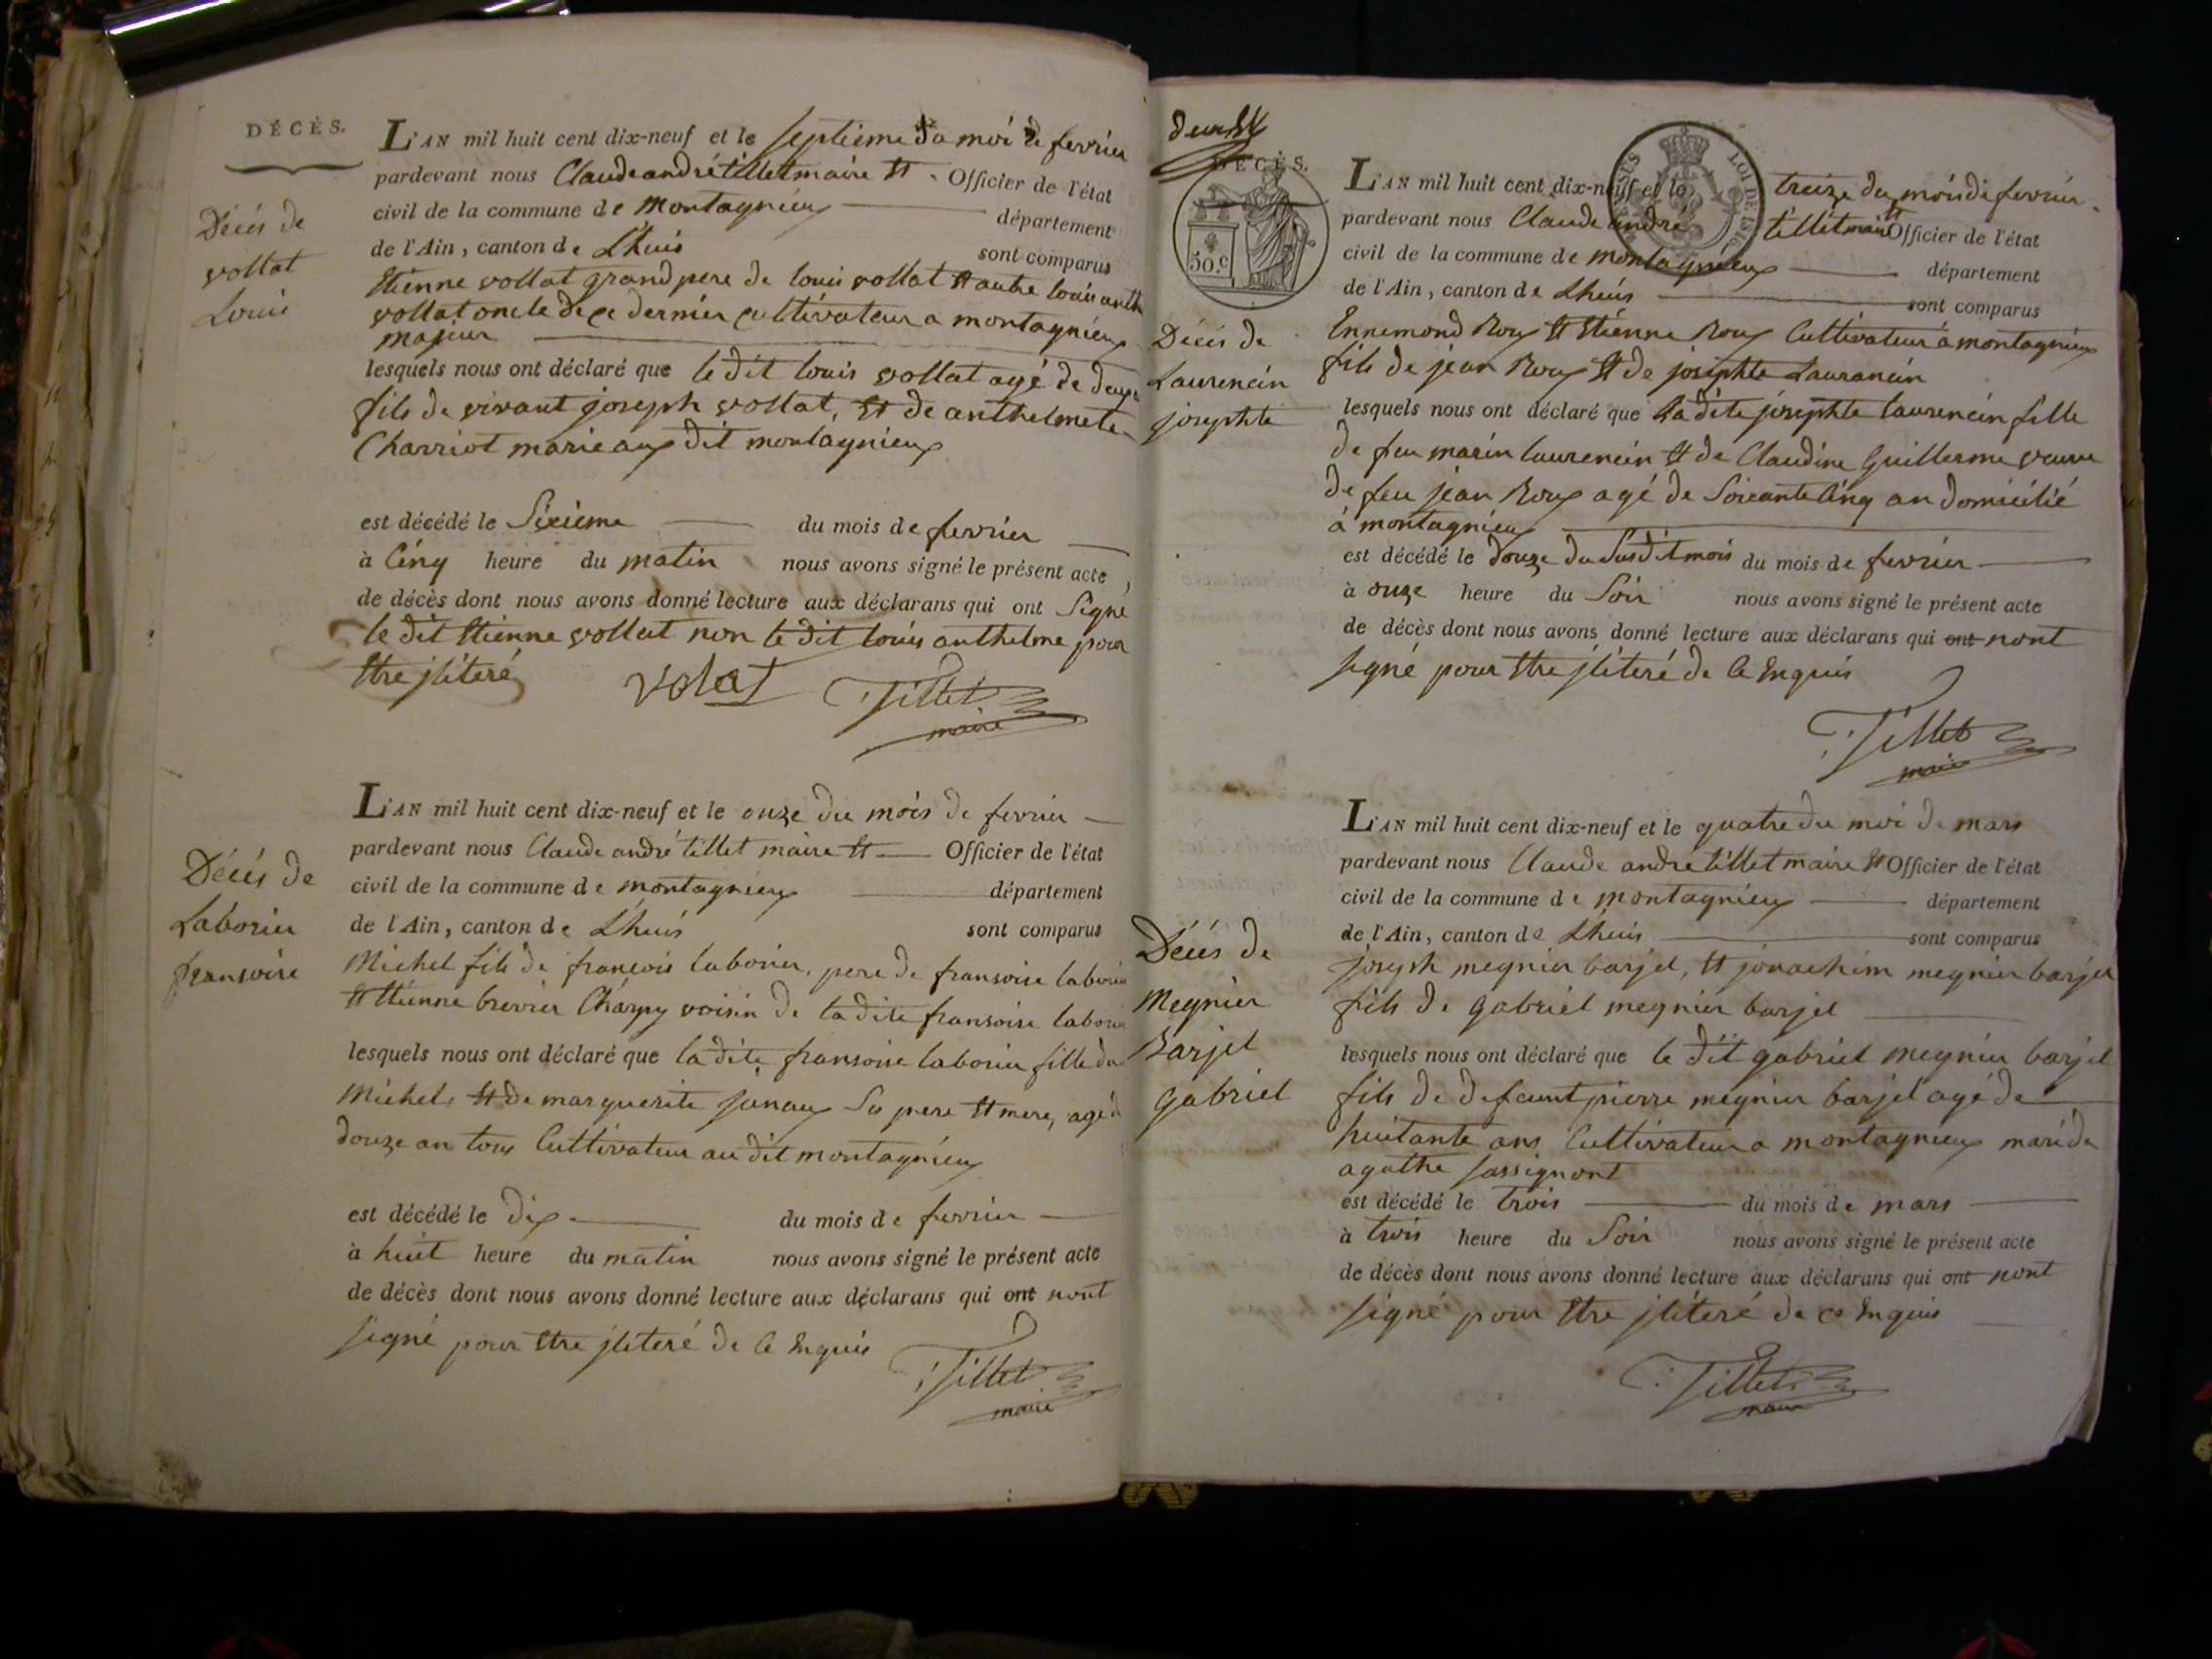 DÉCÈS.
Décés de
vollat
Louis
L'AN mil huit cent dix-neuf et le septieme du moi de fevrier
pardevant nous Claude andré tillet maire et Officier de l'état
civil de la commune de Montagnieu département
de l'Ain, canton de Lhuis sont comparus
Etienne vollat grand pere de louis vollat et autre louis anth
vollat oncle de ce dernier cultivateur a montagnieu
majeur
lesquels nous ont déclaré que le dit louis vollat agé de deux
fils de vivant joseph vollat, et de anthelmete
Charriot marie aux dit montagnieu
est décédé le Sixieme du mois de fevrier
à Cinq heure du matin nous avons signé le présent acte
de décès dont nous avons donné lecture aux déclarans qui ont Signé
le dit Etienne vollat non le dit louis anthelme pour
Etre jliteré
volat Tillet
maire
Décés de
Laborier
fransoise
L'AN mil huit cent dix-neuf et le onze du mois de fevrier
pardevant nous Claude andré tillet maire et Officier de l'état
civil de la commune de montagnieu département
de l'Ain, canton de Lhuis sont comparus
Michel fils de francois laborier, pere de fransoise laborier
et Etienne brevier Charpy voisin de ladite fransoise laborier
lesquels nous ont déclaré que ladite fransoise laborier fille du
Michel et de marguerite Junaux Ses pere et mere, agé de
douze an tous Cultivateur au dit montagnieu
est décédé le dix du mois de fevrier
à huit heure du matin nous avons signé le présent acte
de décès dont nous avons donné lecture aux déclarans qui ont nont
signé pour Etre jliteré de Ce Enquis
Tillet
maire
DÉCÈS.
50.c
LOI DE 1816
L'AN mil huit cent dix-neuf et le treize du mois de fevrier
pardevant nous Claude andre tillet maire et Officier de l'état
civil de la commune de montagnieu département
de l'Ain, canton de Lhuis sont comparus
Décés de
Laurencin
josephte
Ennemond Roux et Etienne Roux Cultivateur a montagnieu
fils de jean Roux et de josephte Laurancin
lesquels nous ont déclaré que la dite josephte laurencin fille
de feu marin laurencin et de Claudine Guillerme veuve
de feu jean Roux agé de Soixante Cinq an domicilié
à montagnieu
est décédé le douze du Susdit mois du mois de fevrier
à onze heure du Soir nous avons signé le présent acte
de décès dont nous avons donné lecture aux déclarans qui ont nont
signé pour Etre jliteré de Ce Enquis
Tillet
maire
Décés de
Megnier
Barjel
gabriel
L'AN mil huit cent dix-neuf et le quatre du moi de mars
pardevant nous Claude andre tillet maire et Officier de l'état
civil de la commune de montagnieu département
de l'Ain, canton de Lhuis sont comparus
joseph megnier barjel, et jouachim megnier barjel
fils de gabriel megnier barjel
lesquels nous ont déclaré que le dit gabriel megnier barjel
fils de defaunt pierre megnier barjel agé de
huitante ans Cultivateur a montagnieux mari de
agathe Sassignont
est décédé le trois du mois de mars
à trois heure du Soir nous avons signé le présent acte
de décès dont nous avons donné lecture aux déclarans qui ont nont
signé pour Etre jliteré de ce Enquis
Tillet
maire